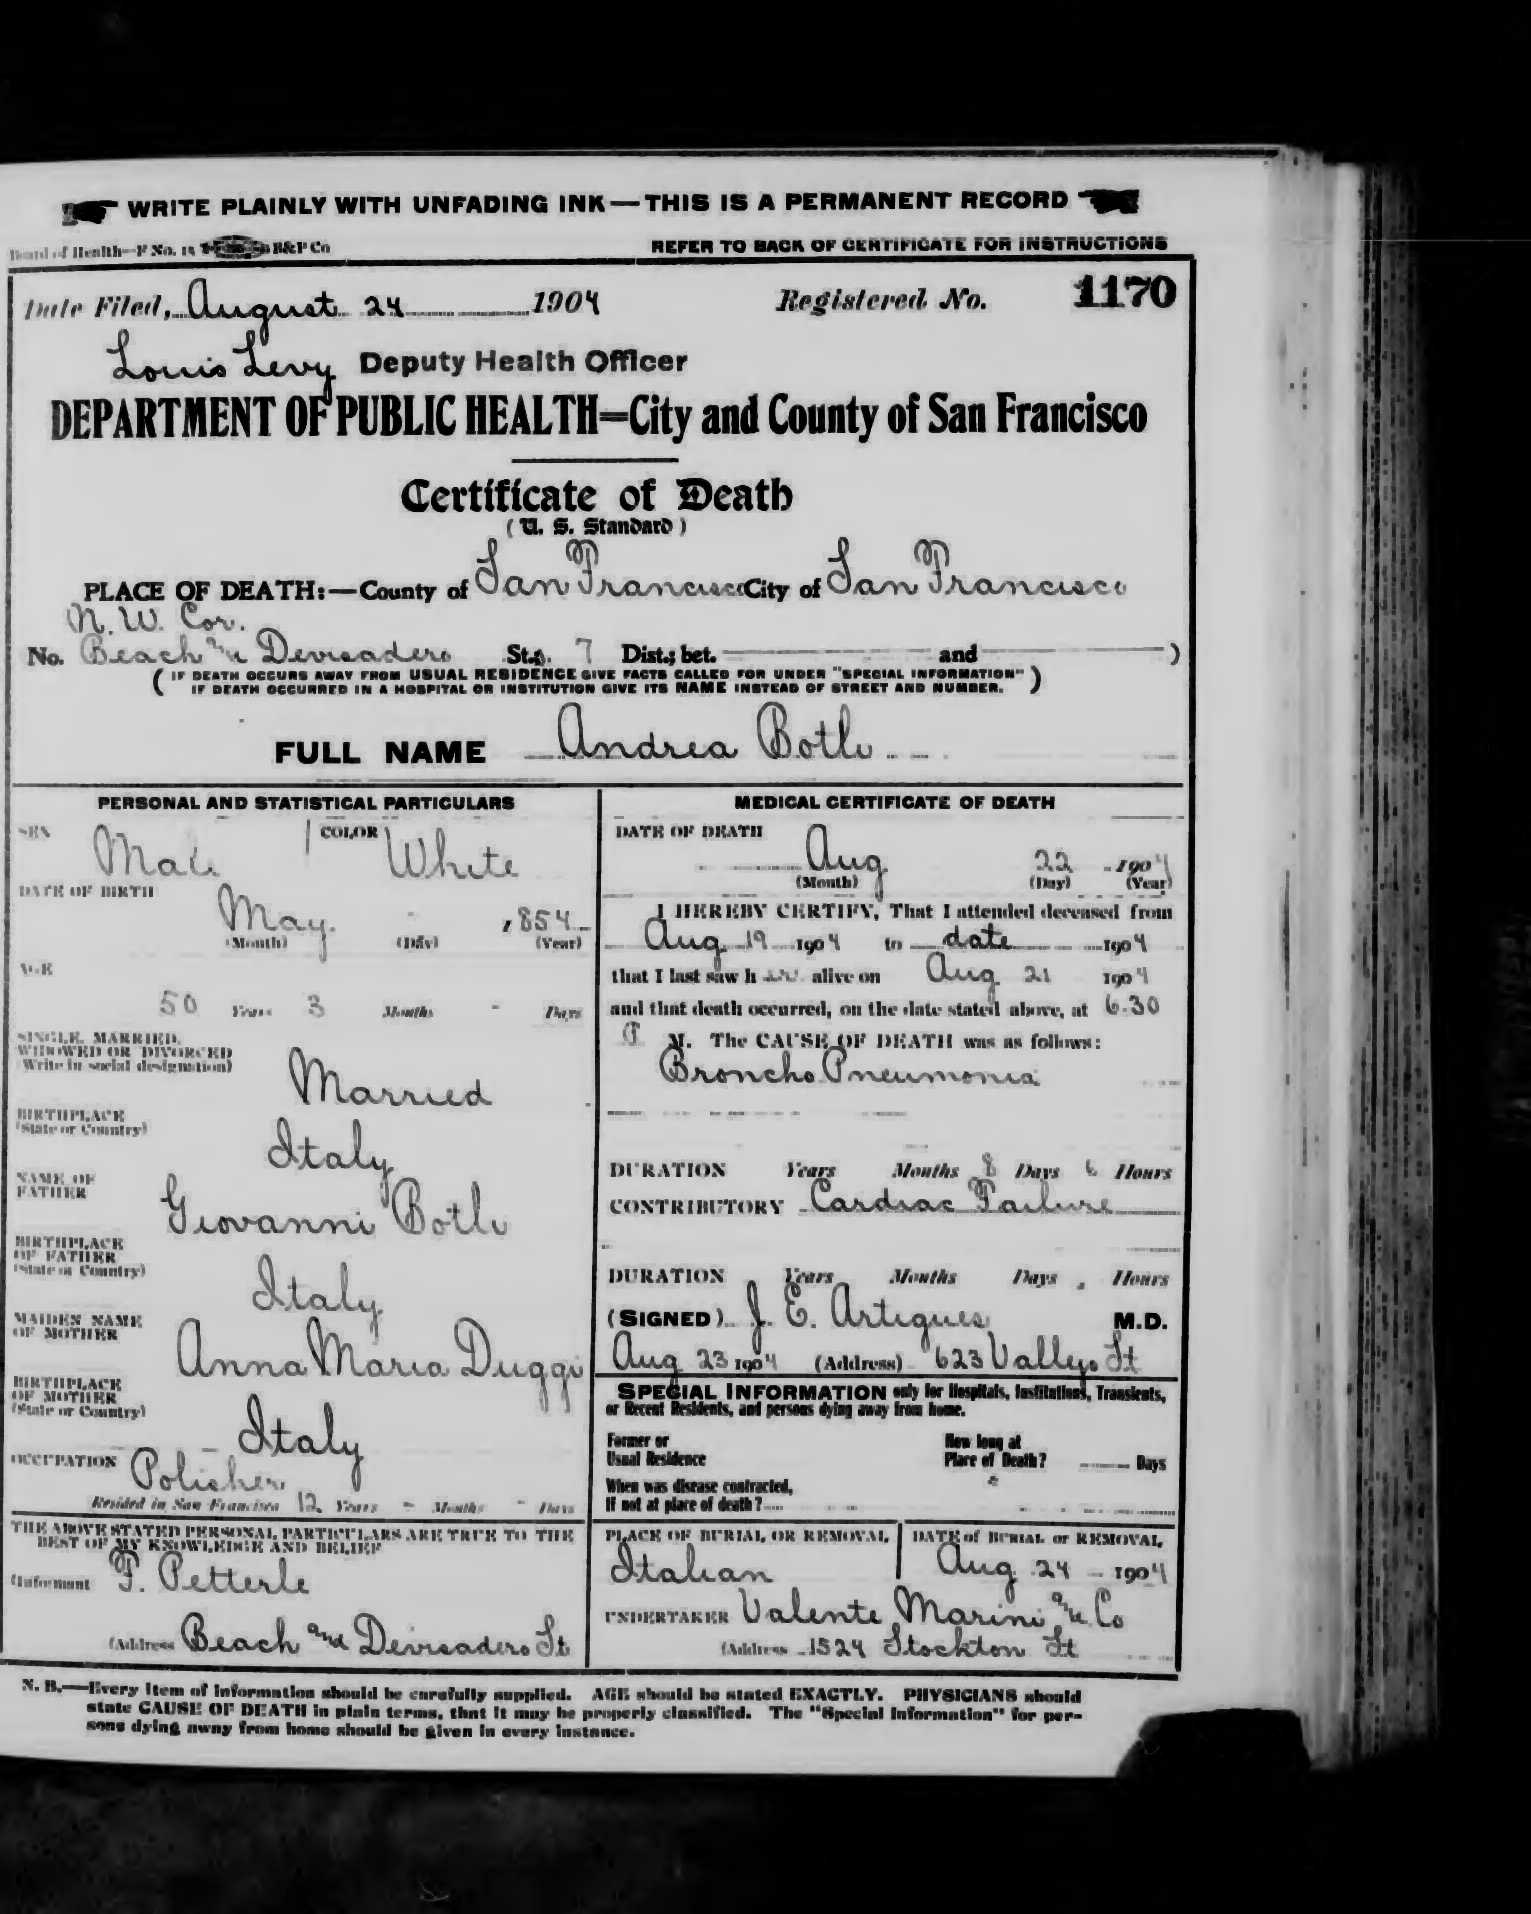 WRITE PLAINLY WITH UNFADING INK—THIS IS A PERMANENT RECORD
Board of Health—F No. 15 B&P Co
REFER TO BACK OF CERTIFICATE FOR INSTRUCTIONS
Date Filed, August 24 1904 Registered No. 1170
Louis Levy Deputy Health Officer
DEPARTMENT OF PUBLIC HEALTH=City and County of San Francisco
Certificate of Death
(U. S. Standard)
PLACE OF DEATH:—County of San Francisco City of San Francisco
N. W. Cor.
No. Beach and Devisadero St.; 7 Dist.; bet. and )
( IF DEATH OCCURS AWAY FROM USUAL RESIDENCE GIVE FACTS CALLED FOR UNDER "SPECIAL INFORMATION" )
IF DEATH OCCURRED IN A HOSPITAL OR INSTITUTION GIVE ITS NAME INSTEAD OF STREET AND NUMBER.
FULL NAME Andrea Botli
PERSONAL AND STATISTICAL PARTICULARS
SEX Male COLOR White
DATE OF BIRTH
May 1854
(Month) (Day) (Year)
AGE
50 Years 3 Months - Days
SINGLE, MARRIED,
WIDOWED OR DIVORCED
(Write in social designation)
Married
BIRTHPLACE
(State or Country)
Italy
NAME OF
FATHER
Giovanni Botli
BIRTHPLACE
OF FATHER
(State or Country)
Italy
MAIDEN NAME
OF MOTHER
Anna Maria Duggi
BIRTHPLACE
OF MOTHER
(State or Country)
Italy
OCCUPATION Polisher
Resided in San Francisco 12 Years - Months - Days
THE ABOVE STATED PERSONAL PARTICULARS ARE TRUE TO THE
BEST OF MY KNOWLEDGE AND BELIEF
(Informant F. Petterle
(Address Beach and Devisadero St
MEDICAL CERTIFICATE OF DEATH
DATE OF DEATH
Aug 22 1904
(Month) (Day) (Year)
I HEREBY CERTIFY, That I attended deceased from
Aug 19 1904 to date 1904
that I last saw h im alive on Aug 21 1904
and that death occurred, on the date stated above, at 6.30
P M. The CAUSE OF DEATH was as follows:
Broncho Pneumonia
DURATION Years Months 8 Days 6 Hours
CONTRIBUTORY Cardiac Failure
DURATION Years Months Days Hours
(SIGNED) J. E. Artigues M.D.
Aug 23 1904 (Address) 623 Vallejo St
SPECIAL INFORMATION only for Hospitals, Institutions, Transients,
or Recent Residents, and persons dying away from home.
Former or
Usual Residence
How long at
Place of Death? Days
When was disease contracted,
If not at place of death?
PLACE OF BURIAL OR REMOVAL
Italian
DATE of BURIAL or REMOVAL
Aug 24 1904
UNDERTAKER Valente Marini and Co
(Address 1524 Stockton St
N. B.—Every item of information should be carefully supplied. AGE should be stated EXACTLY. PHYSICIANS should
state CAUSE OF DEATH in plain terms, that it may be properly classified. The "Special Information" for per-
sons dying away from home should be given in every instance.